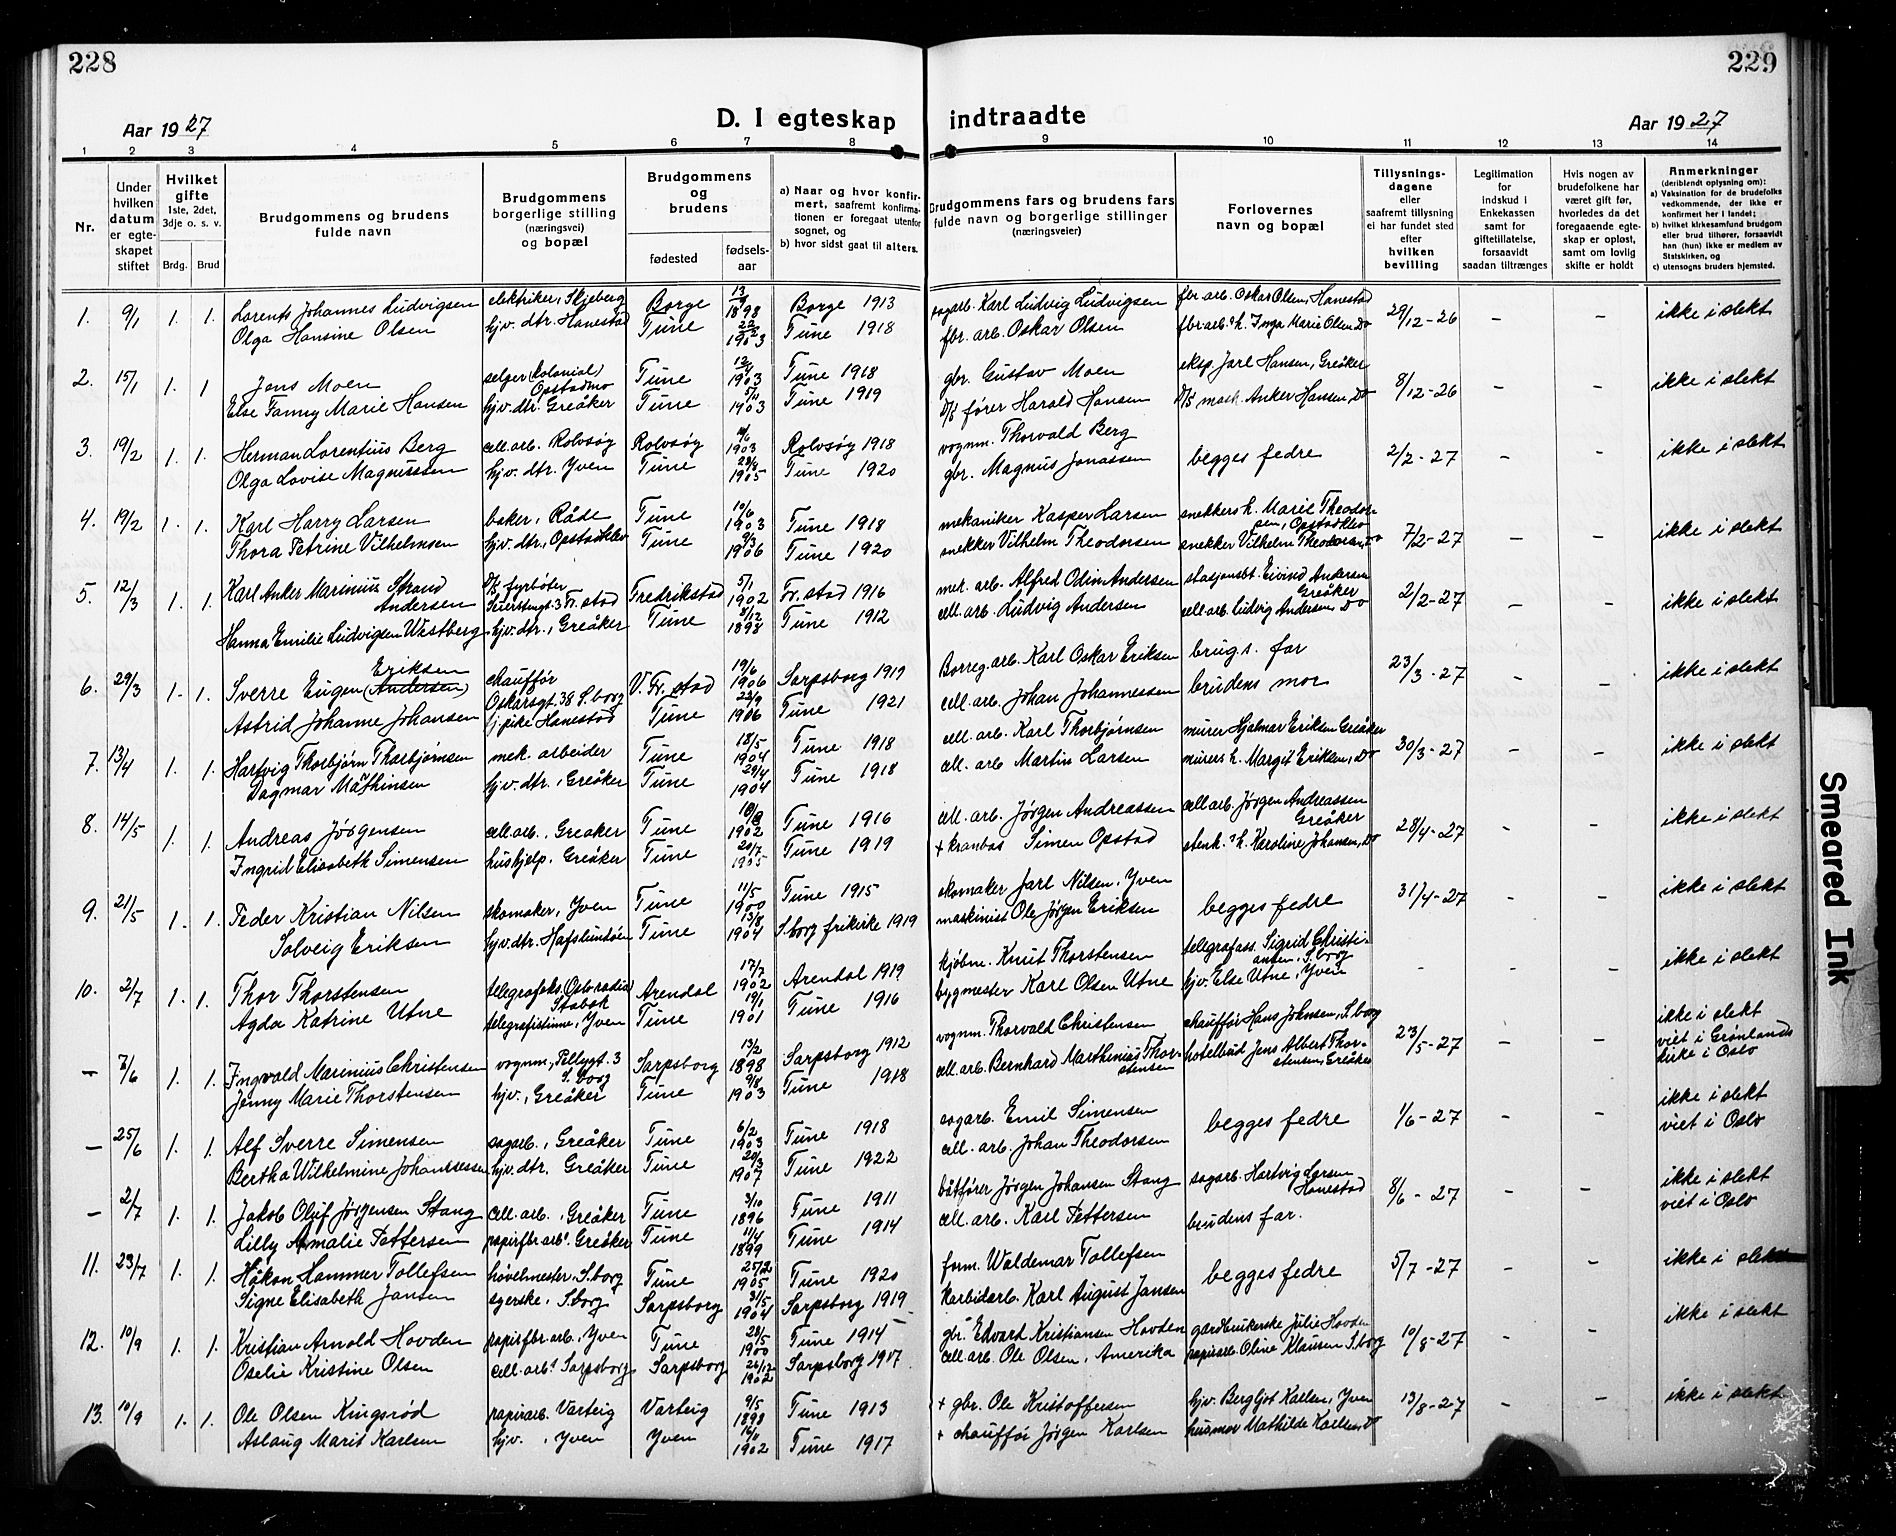 228
229
Aar 1927
D. I egteskap indtraadte
Aar 1927
1 2 3 4 5 6 7 8 9 10 11 12 13 14
Nr.
Under hvilken datum er egteskapet stiftet
Hvilket gifte 1ste, 2det, 3dje o. s. v.
Brdg. Brud
Brudgommens og brudens fulde navn
Brudgommens borgerlige stilling (næringsvei) og bopæl
Brudgommens og brudens
fødested
fødselsaar
a) Naar og hvor konfirmert, saafremt konfirmationen er foregaat utenfor sognet, og
b) hvor sidst gaat til alters.
Brudgommens fars og brudens fars fulde navn og borgerlige stillinger (næringsveier)
Forlovernes navn og bopæl
Tillysningsdagene eller saafremt tillysning ei har fundet sted efter hvilken bevilling
Legitimation for indskud i Enkekassen samt for giftetillatelse, forsaavidt saadan tiltrænges
Hvis nogen av brudefolkene har været gift før, hvorledes da det foregaaende egteskap er opløst, samt om lovlig skifte er holdt
Anmerkninger (deriblendt oplysning om):
a) Vaksination for de brudefolks vedkommende, der ikke er konfirmert her i landet;
b) hvilket kirkesamfund brudgom eller brud tilhører, forsaavidt han (hun) ikke er medlem av Statskirken, og
c) utensogns bruders hjemsted.
1. 9/1 1. 1. Lorents Johannes Ludvigsen elektriker, Skjeberg Borge 13/9 1898 Borge 1913 sagarb. Karl Ludvig Ludvigsen fbr. arb. Oskar Olsen, Hanestad 29/12-26 - - ikke i slekt
Olga Hansine Olsen hjv. dtr. Hanestad Tune 22/2 1903 Tune 1918 fbr. arb. Oskar Olsen fbr arb.s h. Inga Marie Olsen Do
2. 15/1 1. 1 Jens Moen selger (kolonial) Opstadmo Tune 12/4 1903 Tune 1918 gbr. Gustav Moen eksp. Jarl Hansen, Greåker 8/12-26 - - ikke i slekt
Else Fanny Marie Hansen hjv. dtr. Greåker Tune 5/11 1903 Tune 1919 D/S fører Harald Hansen D/S mask. Anker Hansen, Do
3. 19/2 1. 1. Herman Lorentius Berg cell. arb. Rolvsøy Rolvsøy 1903 Rolvsøy 1918 vognm. Thorvald Berg begges fedre 2/2-27 - - ikke i slekt
Olga Lovise Magnussen hjv. dtr. Yven Tune 1905 Tune 1920 gbr. Magnus Jonassen
4. 19/2 1. 1. Karl Harry Larsen baker, Råde Tune 10/6 1903 Tune 1918 mekaniker Kasper Larsen snekkers h. Marie Theodorsen, Opstadklev 7/2-27 - - ikke i slekt
Thora Petrine Vilhelmsen hjv. dtr., Opstadklev Tune 9/3 1906 Tune 1920 snekker Vilhelm Theodorsen snekker Vilhelm Theodorsen, Do
5. 12/3 1. 1. Karl Anker Marinius Strand Andersen D/S fyrbøter Fr. stad Fredrikstad 5/1 1902 Fr. stad 1916 mek. arb. Alfred Odin Andersen stasjonsbt. Eivind Andersen Greåker 2/2-27 - - ikke i slekt
Hanna Emilie Ludvigsen Westberg hjv. dtr., Greåker Tune 8/12 1898 Tune 1912 cell. arb. Ludvig Andersen cell. arb. Ludvig Andersen, Do
6. 29/3 1. 1. Sverre Eugen Eriksen (Andersen) chauffør Oskarsgt. 38 S. borg V. Fr. stad 19/6 1906 Sarpsborg 1919 Borreg. arb. Karl Oskar Eriksen brugs. far 23/3-27 - - ikke i slekt
Astrid Johanne Johansen tj. pike Hanestad Tune 1906 Tune 1921 cell. arb. Johan Johannessen brudens mor
7. 13/4 1. 1. Hartvig Thorbjørn Thorbjørnsen mek. arbeider Tune 18/5 1904 Tune 1918 cell. arb. Karl Thorbjørnsen murer Hjalmar Eriksen Greåker 30/3-27 - - ikke i slekt
Dagmar Mathinsen hjv. dtr., Greåker Tune 29/4 1904 Tune 1918 cell. arb Martin Larsen murers h. Margit Eriksen, Do
8. 14/5 1. 1. Andreas Jørgensen cell. arb., Greaker Tune 1902 Tune 1916 cell. arb. Jørgen Andreassen cell arb. Jørgen Andreassen Greåker 28/4-27 - - ikke i slekt
Ingrid Elisabeth Simensen hushjelp, Greåker Tune 20/7 1905 Tune 1919 + kranbas Simen Opstad stenh.s h. Karoline Johansen, Do
9. 21/5 1. 1. Peder Kristian Nilsen skomaker, Yven Tune 11/5 1900 Tune 1915 skomaker Jarl Nilsen, Yven begges fedre 31/4-27 - - ikke i slekt
Solveig Eriksen hjv. dtr. Hafslundsøen Tune 13/8 1904 S. borg frikirke 1919 maskinist Ole Jørgen Eriksen
10. 2/7 1. 1. Thor Thorstensen telegrafeks. Oslo radio Stabæk Arendal 17/7 1902 Arendal 1919 kjøbm. Knut Thorstensen telegrafass. Sigrid Christiansen, S. borg - - - ikke i slekt
Agda Katrine Utne telegrafistinne, Yven Tune 19/1 1901 Tune 1916 bygmester Karl Olsen Utne hjv. Else Utne, Yven
- 7/6 1. 1. Ingvald Marinius Christensen vognm., Pellygt. 3 S. borg Sarpsborg 13/2 1898 Sarpsborg 1912 vognm. Thorvald Christensen chauffør Hans Johnsen, S. borg 23/5-27 - - ikke i slekt viet i Grønlands kirke i Oslo
Jenny Marie Thorstensen hjv., Greåker Tune 9/8 1903 Tune 1918 cell. arb. Bernhard Marthinius Thorstensen hotelbud Jens Albert Thorstensen, Greåker
- 25/6 1. 1. Alf Sverre Simensen sagarb., Greåker Tune 6/2 1903 Tune 1918 sagarb. Emil Simensen begges fedre 1/6-27 - - ikke i slekt viet i Oslo
Bertha Wilhelmine Johannessen hjv. dtr. Greåker Tune 20/3 1907 Tune 1922 cell. arb. Johan Theodorsen
- 2/7 1. 1. Jakob Oluf Jørgensen Stang cell. arb., Greåker Tune 3/10 1896 Tune 1911 båtfører Jørgen Johansen Stang sagarb. Hartvig Larsen Hanestad 8/6-27 - - ikke i slekt viet i Oslo
Lilly Amalie Pettersen papirfbr arb., Greåker Tune 11/4 1899 Tune 1914 cell. arb. Karl Pettersen brudens far.
11. 23/7 1. 1. Håkon Hammer Tollefsen høvelmester, S. borg Tune 1905 Tune 1920 form. Waldemar Tollefsen begges fedre 5/7-27 - - ikke i slekt
Signe Elisabeth Jansen syerske, S. borg Sarpsborg 31/5 1904 Sarpsborg 1919 karbidarb. Karl August Jansen
12. 10/9 1. 1. Kristian Arnold Hovden papirfbr. arb., Yven Tune 28/5 1900 Tune 1914 gbr. Edvard Kristiansen Hovden gardbrukerske Julie Hovden 10/8-27 - - ikke i slekt
Oselie Kristine Olsen cell. arb. Sarpsborg Sarpsborg 1902 Sarpsborg 1917 cell. arb. Ole Olsen, Amerika papirarb. Oline Klausen S. borg
13. 10/9 1. 1. Ole Olsen Kingsrød papirarb. Varteig Varteig 9/5 1898 Tune 1913 + gbr. Ole Kristoffersen hjv. Bergljot Karlsen, Yven 13/8-27 - - ikke i slekt
Aslaug Marit Karlsen hjv., Yven Yven 16/11 1902 Tune 1917 + chauffør Jørgen Karlsen husmor Mathilde Karlsen, Do
Smeared Ink